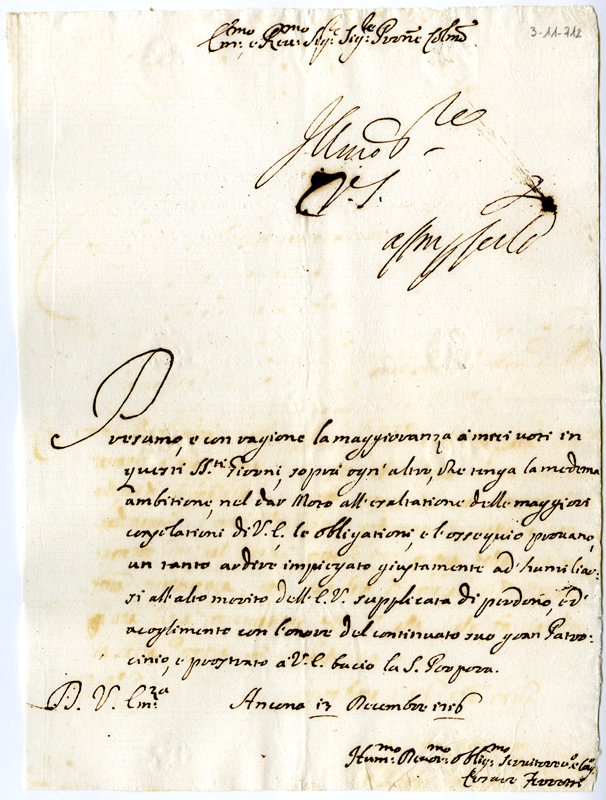 Em:mo e Rev:mo Sig:re Sig:re Pron̄e Col:mo
3-11-712
V. S.
Presumo, e con ragione la maggioranza a i miei voti in
questi SS.ti Giorni, sopra ogn'altro, che tenga la medema
ambitione, nel dar Moto all'esaltatione delle maggiori
consolationi di V. E. le obligationi, e l'ossequio provano,
un tanto ardire impiegato giustamente ad humiliar-
si all'alto merito dell'E. V. supplicata di perdono, ed'
acoglimento con l'onore del continuato suo gran Patro-
cinio, e prostrato a V. E. bacio la S. Porpora.
D. V. Em:za Ancona 13 Decembre 1716
Hum:mo Devot:mo Oblig:mo Servitore
Cesare Ferretti